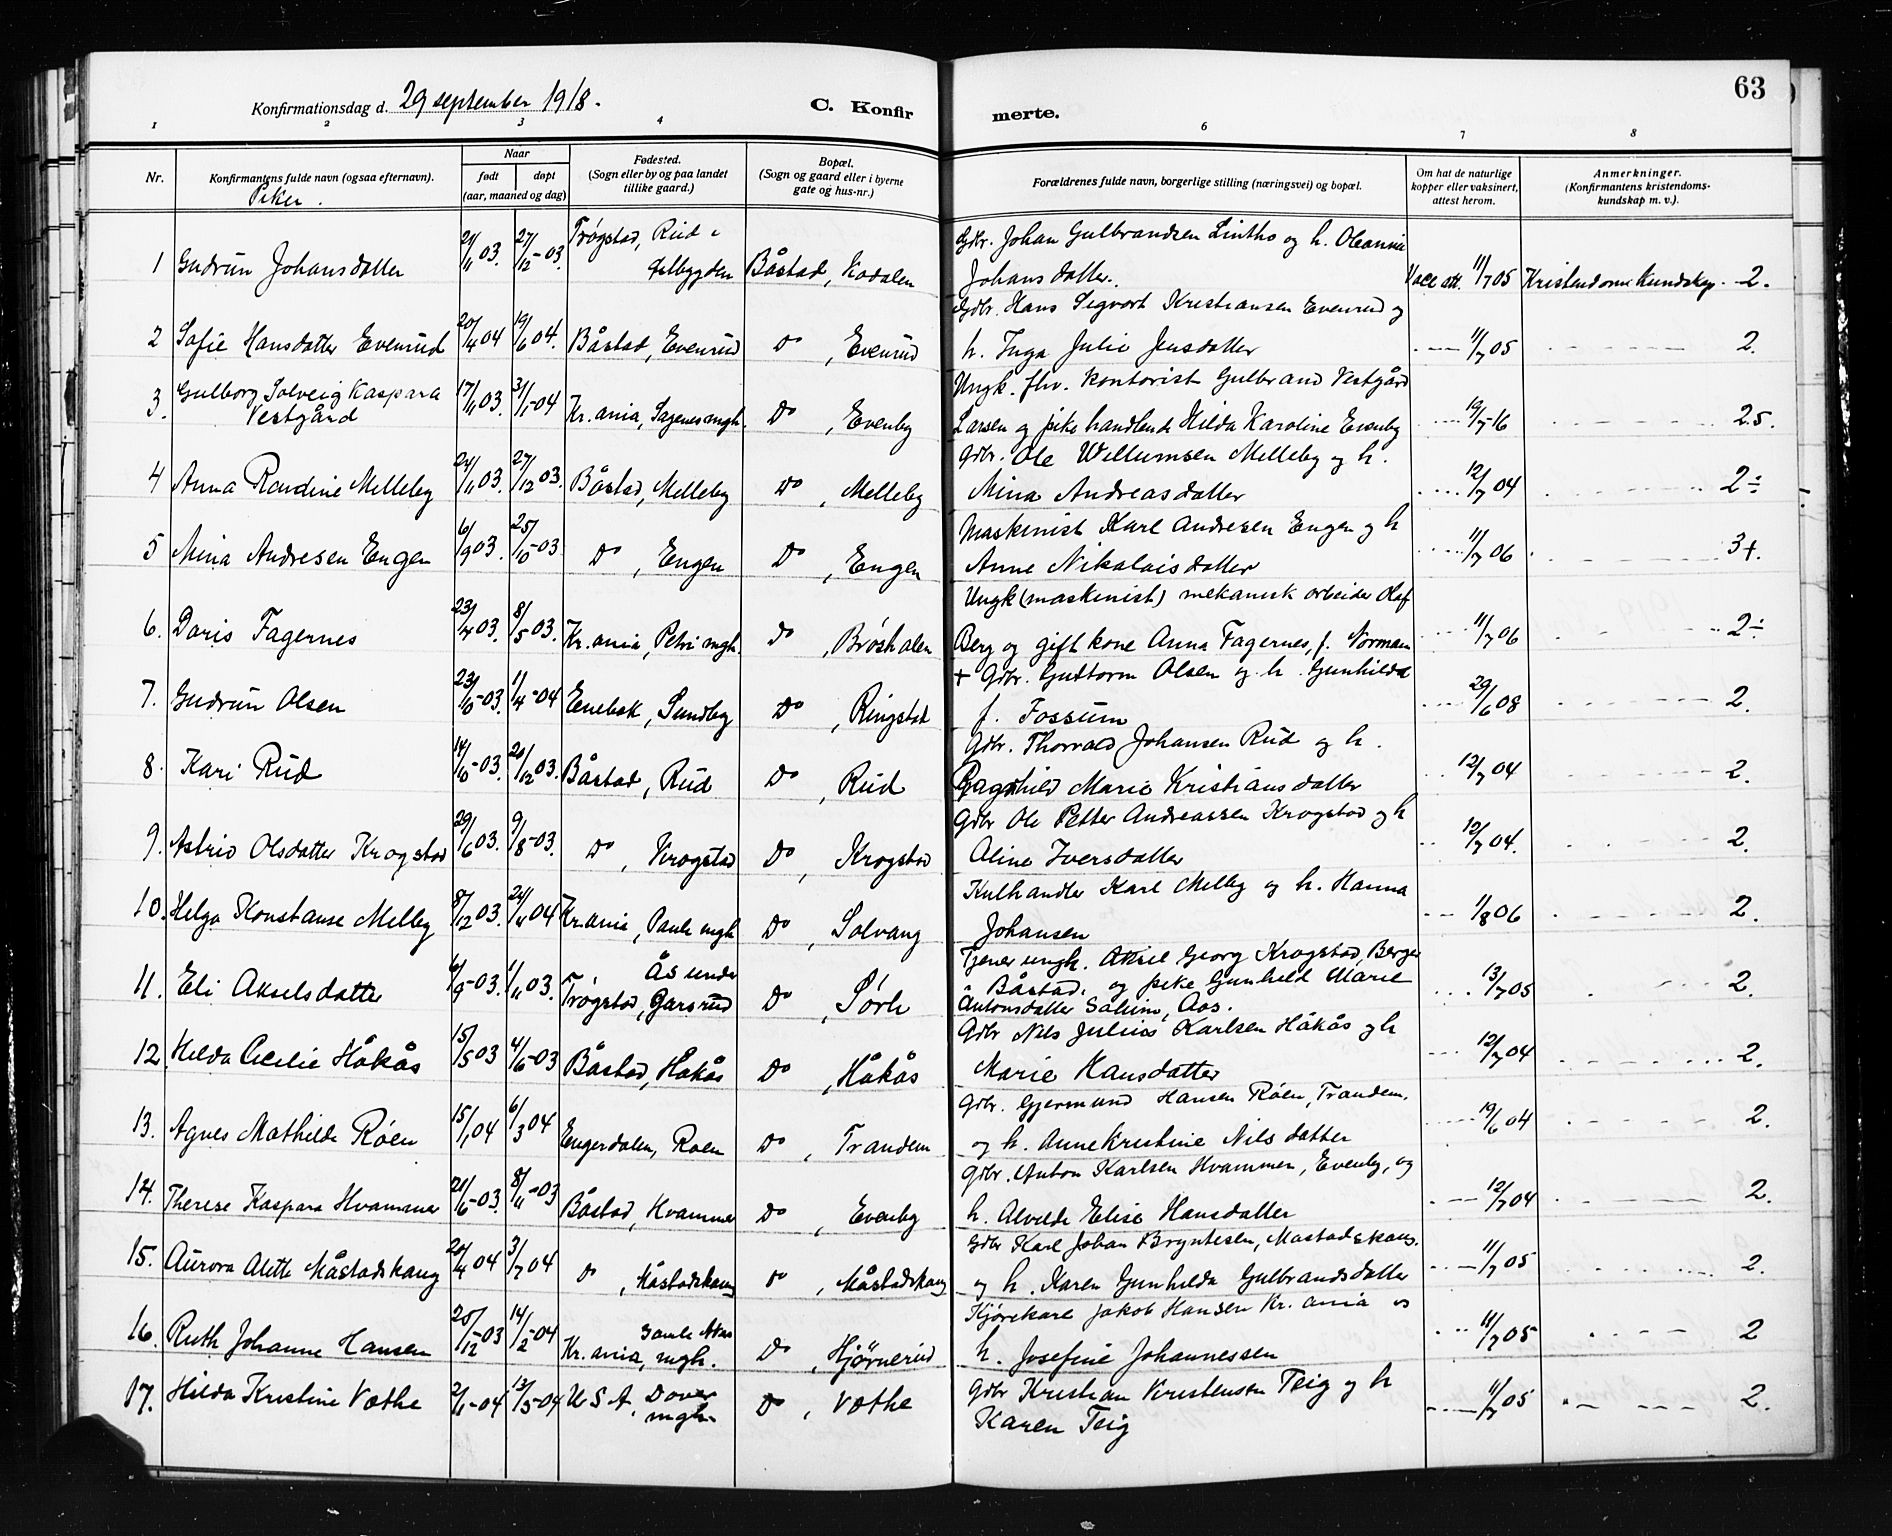 63
Konfirmationsdag d. 29 september 1918.
C. Konfir merte.
1 2 3 4 6 7 8
Nr. Konfirmantens fulde navn (ogsaa efternavn). Naar født døpt (aar, maaned og dag) Fødested. (Sogn eller by og paa landet tillike gaard.) Bopæl. (Sogn og gaard eller i byerne gate og hus-nr.) Forældrenes fulde navn, borgerlige stilling (næringsvei) og bopæl. Om hat de naturlige kopper eller vaksinert, attest herom. Anmerkninger. (Konfirmantens kristendoms-kundskap m. v.).
Piker.
Trøgstad, Rud i Gdbr. Johan Gulbrandsen Lintho og h. Oleanna
1 Gudrun Johansdatter 21/11 03. 27/12-03. Båstad, Kodalen Johansdatter. Vacc att. 11/7 05 Kristendoms Kundskap. 2.
Gdbr. Hans Sigvart Kristiansen Evenrud og
2 Sofie Hansdatter Evenrud 20/4 04 19/6 04. Båstad, Evenrud Do, Evenrud h. Inga Julie Jensdatter 11/7 05 2.
Gulborg Solveig Kaspara Ungk. fhv. kontorist Gulbrand Vestgård
3. Vestgård 17/11 03. 31/1-04 Kr.ania, Sagenes mgh. Do, Evenby Larsen og pike handlende Hilda Karoline Evenby 19/5-16 2.5.
Gdbr. Ole Willumsen Melleby og h.
4 Anna Randine Melleby 24/11 03. 27/12 03. Båstad, Melleby Do, Melleby Mina Andreasdatter 12/7 04 2÷
Maskinist Karl Andresen Engen og h
5 Mina Andresen Engen 6/9 03. 25/10-03 Do, Engen Do, Engen Anne Nikolaisdatter 11/7 06 3+.
Ungk (maskinist) mekanisk arbeider Olaf
6. Doris Fagernes 23/4 03. 8/5 03. Kr.ania, Petri mgh. Do, Brøshalen Berg og gift kone Anna Fagernes, f. Norman 11/7 06 2÷
+ Gdbr. Guttorm Olsen og h. Gunhilda
7. Gudrun Olsen 23/10-03. 1/4-04 Enebak, Sundby Do, Ringstad f. Fossum 29/6 08 2.
Gdbr. Thorvald Johansen Rud og h.
8. Kari Rud 14/10-03. 20/12 03. Båstad, Rud Do, Rud Ragnhild Marie Kristiansdatter 12/7 04 2.
Gdbr Ole Petter Andreassen Krogstad og h
9. Astrid Olsdatter Krogstad 29/6 03. 9/8-03. Do, Krogstad Do, Krogstad Aline Iversdatter 12/7 04. 2.
Kulhandler Karl Melby og h. Hanna
10. Helga Konstanse Melby 8/12 03. 24/4 04 Kr.ania, Pauls mgh Do, Solvang Johansen 1/8 06 2.
Ås under Tjener ungk. Aksel Georg Krogstad, Berger
11. Eli Akselsdatter 6/9-03. 1/11 03. Trøgstad, Garsrud Do, i Båstad, og pike Gunhild Marie 13/7 05 2.
Antonsdatter Aas.
Gdbr Nils Julius Karlsen Håkås og h
12. Hilda Cecilie Håkås 15/5 03 4/6-03 Båstad, Håkås Do, Håkås Marie Hansdatter 12/7 04 2.
Gdbr. Gjermund Hansen Røen, Trandem.
13. Agnes Mathilde Røen 15/1 04 6/3 04 Engerdalen, Roen Do, Trandem og h. Anne Kristine Nilsdatter 19/6 04 2.
Gdbr. Anton Karlsen Hvammer, Evenby, og
14. Therese Kaspara Hvammer 21/6-03. 8/11-03 Båstad, Hvammer Do, Evenby h. Alvilde Elise Hansdatter 12/7 04 2.
Gdbr Karl Johan Bryntesen, Mastadskaug.
15. Aurora Alette Måstadskaug 20/4 04 3/7 04 Do, Måstadskaug Do, Måstadskaug og h. Karen Gunhilda Gulbrandsdatter 11/7 05 2.
Gamle Akers Kjørekarl Jakob Hansen Kr.ania og
16. Ruth Johanne Hansen 25/12-03 14/2-04 Kr.ania, mgh. Do, Hjørnerud h. Josefine Johannessen 11/7 05 2
17. Hilda Kristine Vøthe 2/1-04 13/5-04 U S A, Dover mgh. Do, Vøthe Gdbr Kristian Kristensen Teig og h 11/7 05 2.
Karen Teig